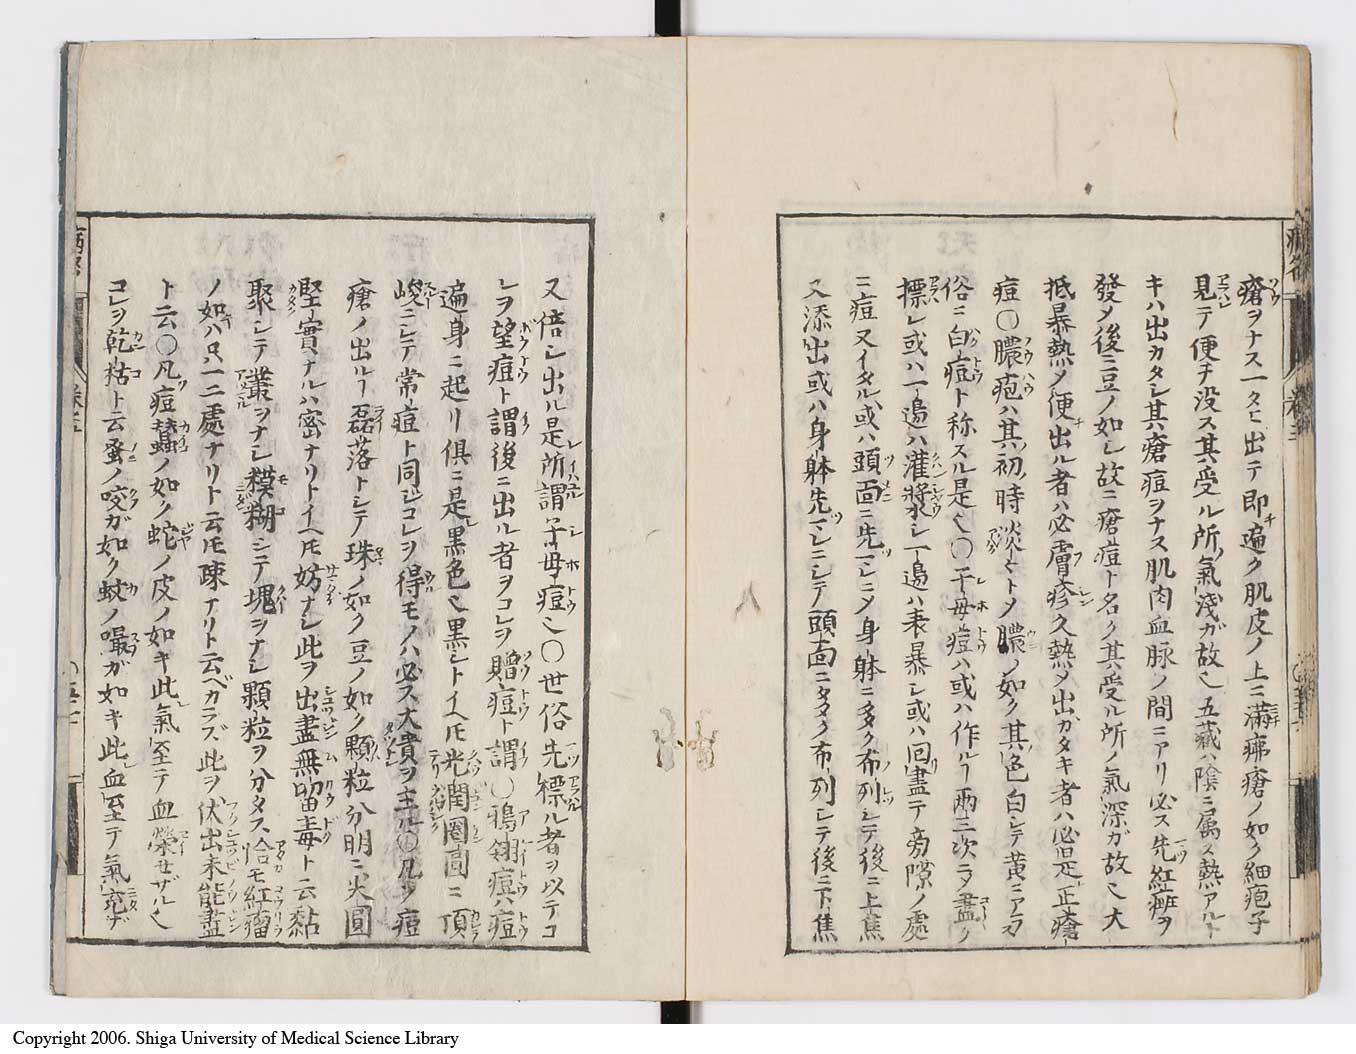 瘡ヲナス一タヒ出テ即チ遍ク肌皮ノ上ニ満疿瘡ノ如ク細疱子
見テ便チ没ス其受ル所ノ氣淺ガ故也五藏ハ陰ニ属ス熱アルト
キハ出カタシ其瘡痘ヲナス肌肉血脉ノ間ニアリ必ス先紅癍ヲ
發メ後ニ豆ノ如シ故ニ瘡痘ト名ク其受ル所ノ氣深ガ故也大
抵暴熱メ便チ出ル者ハ必膚疹久熱メ出ガタキ者ハ必是正瘡
痘〇膿疱ハ其初ノ時淡々トメ膿ノ如ク其色白シテ黄ニアラズ
俗ニ白痘ト称スル是也〇子母痘ハ或ハ作ルヿ兩三次ニヲ盡ク
摽レ或ハ一邉ハ灌漿シ一邉ハ表暴シ或ハ回盡テ旁隙ノ處
ニ痘又イタル或ハ頭面ニ先ツシニメ身躰ニ多ク布列シテ後ニ上焦
又添出或ハ身躰先ツマシニシテ頭面ニタタク布列シテ後ニ下焦
又倍シ出ル是レ所謂子母痘也〇世俗先ツ標ル者ヲ以テコ
レヲ望痘ト謂後ニ出ル者ヲコレヲ贈痘ト謂〇鴉翎痘ハ痘
遍身ニ起リ俱ニ是黒色也黒シトイヘ𪜈光閏圏高ニ頂
峻ニシテ常ノ痘ト同ジコレヲ得モノハ必ス大貴ヲ主ル〇凡ソ痘
瘡ノ出ルヿ磊落トシテ珠ノ如ク豆ノ如ク顆粒分明ニ尖圓
堅實ナルハ密ナリトイヘ𪜈妨ナシ此ヲ出盡無留毒ト云黏
聚シテ叢ヲナシ糢糊シテ塊ヲナシ顆粒ヲ分タス恰モ紅瘤
ノ如キハ只一二處ナリト云𪜈疎ナリト云ベカラズ此ヲ伏出未能盡
ト云〇凡ソ痘蠶ノ如ク蛇ノ皮ノ如キ此レ氣至テ血榮セザル也
コレヲ乾枯ト云蚤ノ咬ガ如ク蚊ノ噆ガ如キ此レ血至テ氣充ザ